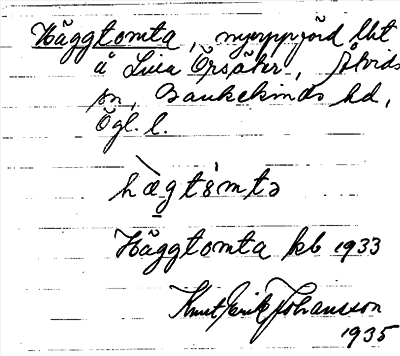 Häggtomta, nyuppförd lht
å Lilla Örsäter, Åtvids
sn, Bankekinds hd,
Ögl. l.
hægtômtə
Häggtomta kb 1933
Knut Erik Johansson
1935